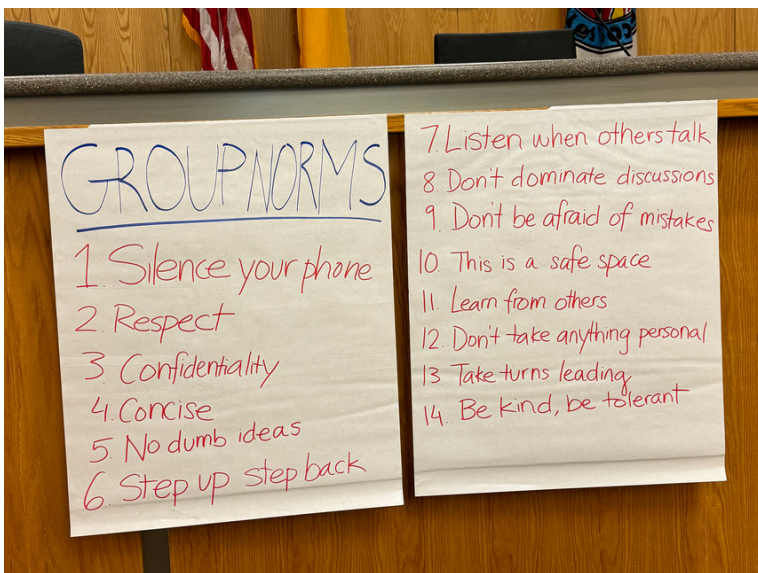 GROUP NORMS
1. Silence your phone
2. Respect
3. Confidentiality
4. Concise
5. No dumb ideas
6. Step up step back
7. Listen when others talk
8. Don't dominate discussions
9. Don't be afraid of mistakes
10. This is a safe space
11. Learn from others
12. Don't take anything personal
13. Take turns leading
14. Be kind, be tolerant